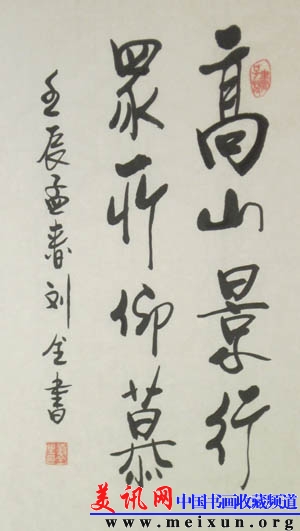 高山景行
眾所仰慕
壬辰孟春刘金書
美讯网 中国书画收藏频道
www.meixun.org